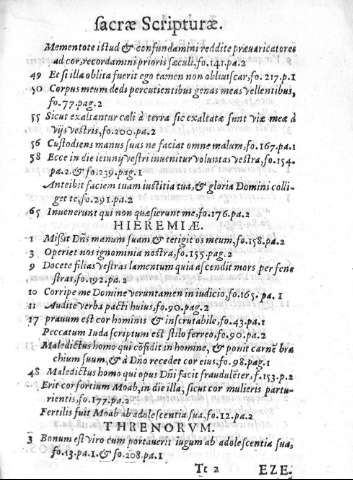 sacræ Scripturæ.
Mementote istud & confundamini reddite prævaricatores
ad cor, recordamini prioris sæculi, fo. 141. pa. 2
49 Et si illa oblita fuerit ego tamen non obliuiscar, fo. 217. p. 1
50 Corpus meum dedi percutientibus genas meas vellentibus,
fo. 77. pag. 2
55 Sicut exaltantur cæli à terra sic exaltatæ sunt viæ meæ à
vijs vestris, fo. 200. pa. 2
56 Custodiens manus suas ne faciat omne malum, fo. 167. pa. 1
58 Ecce in die ieiunij vestri inuenitur voluntas vestra, fo. 154.
pa. 2. & fo. 239. pag. 1
Anteibit faciem tuam iustitia tua, & gloria Domini colli-
get te, fo. 291. pa. 2
65 Inuenerunt qui non quæsierunt me, fo. 176. pa. 2
HIEREMIÆ.
1 Misit Dñs manum suam & tetigit os meum, fo. 158. pa. 2
3 Operiet nos ignominia nostra, fo. 155. pag. 2
9 Docete filias vestras lamentum quia ascendit mors per fene
stras, fo. 192. pa. 2
10 Corripe me Domine veruntamen in iudicio, fo. 165. pa. 1
11 Audite verba pacti huius, fo. 90. pag. 2
17 prauum est cor hominis & inscrutabile, fo. 43. pa. 1
Peccatum Iuda scriptum est stilo ferreo, fo. 90. pa. 2
Maledictus homo qui cõfidit in homine, & ponit carnẽ bra
chium suum, & à Dño recedet cor eius, fo. 98. pag. 1
48 Maledictus homo qui opus Dñi facit fraudulẽter, f. 153. p. 2
Erit cor fortium Moab, in die illa, sicut cor mulieris partu-
rientis, fo. 177. pa. 2
Fertilis fuit Moab ab adolescentia sua. fo. 12. pa. 2
THRENORVM.
3 Bonum est viro cum portauerit iugum ab adolescentia sua,
fo. 13. pa. 1. & fo. 208. pa. 1
Tt 2 EZE.